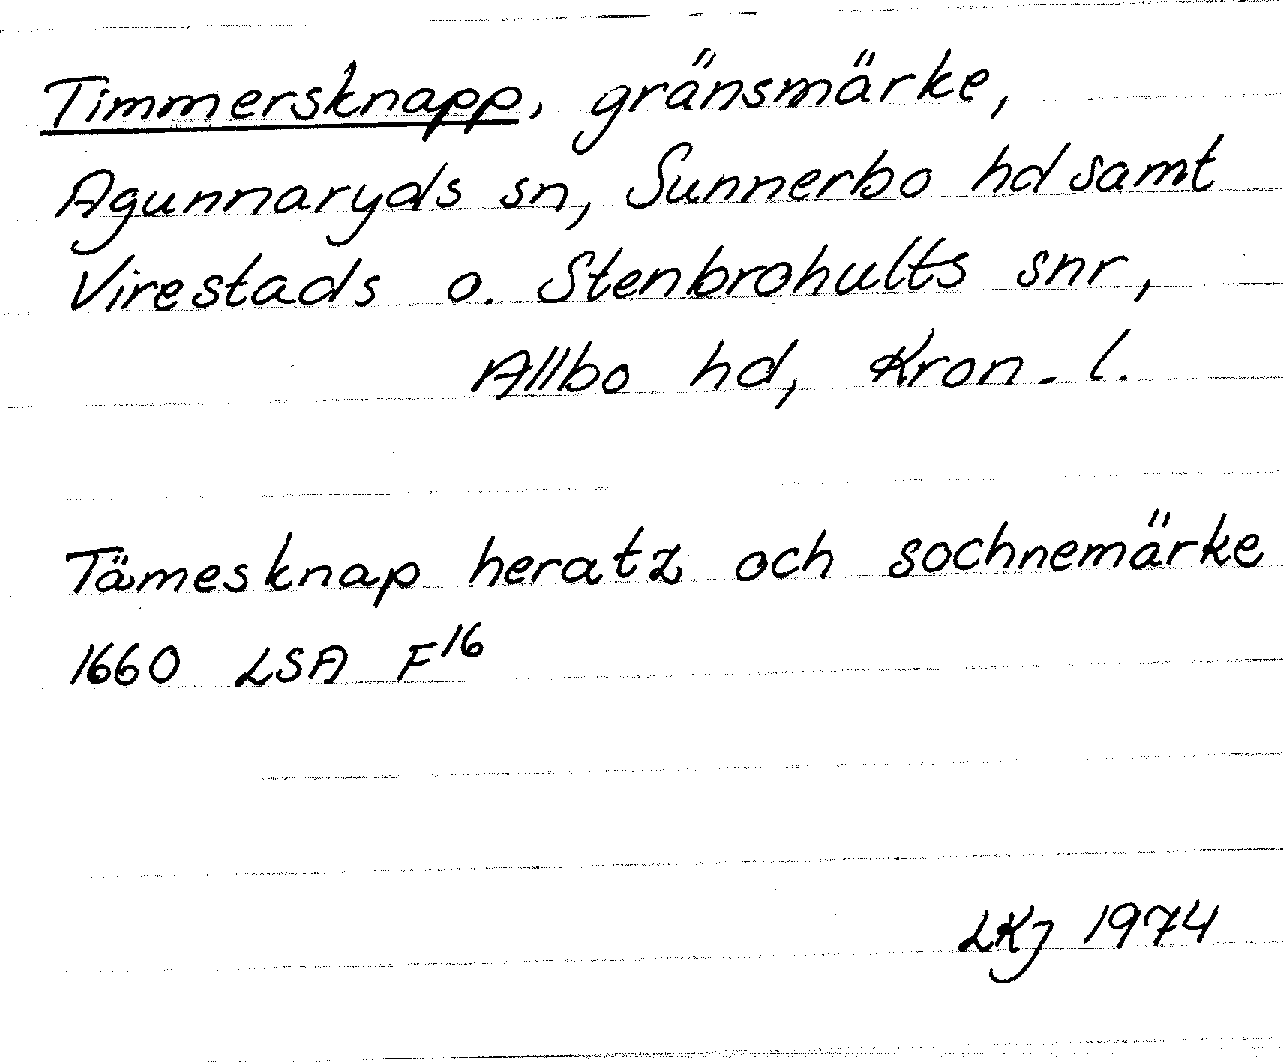 Timmersknapp, gränsmärke,
Agunnaryds sn, Sunnerbo hd samt
Virestads o. Stenbrohults snr,
Allbo hd, Kron. l.
Tämesknap heratz och sochnemärke
1660 LSA F16
LKj 1974